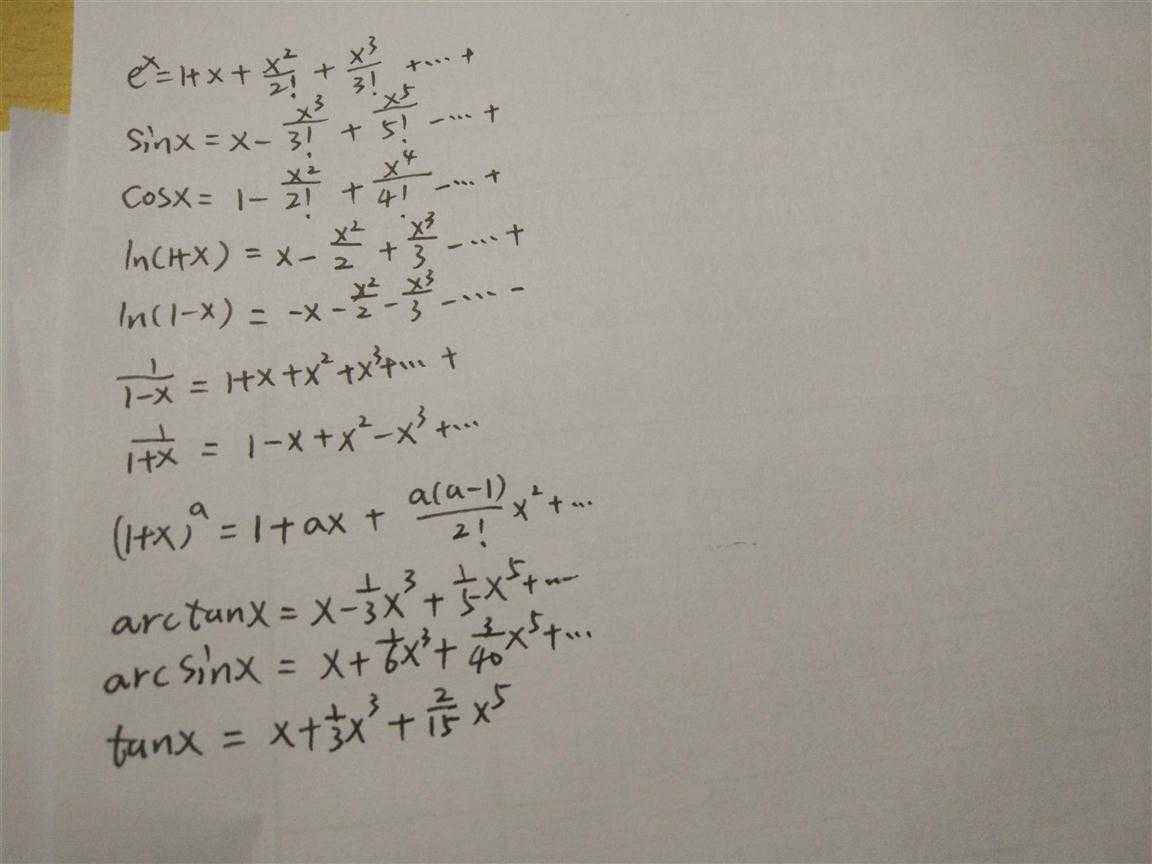 e^x = 1 + x + x^2/2! + x^3/3! + ... +
sinx = x - x^3/3! + x^5/5! - ... +
cosx = 1 - x^2/2! + x^4/4! - ... +
ln(1+x) = x - x^2/2 + x^3/3 - ... +
ln(1-x) = -x - x^2/2 - x^3/3 - ... -
1/(1-x) = 1 + x + x^2 + x^3 + ... +
1/(1+x) = 1 - x + x^2 - x^3 + ...
(1+x)^a = 1 + ax + a(a-1)/2! x^2 + ...
arctanx = x - 1/3 x^3 + 1/5 x^5 + ...
arcsinx = x + 1/6 x^3 + 3/40 x^5 + ...
tanx = x + 1/3 x^3 + 2/15 x^5